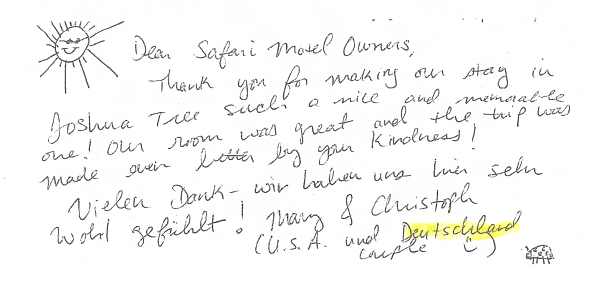 Dear Safari Motel Owners,
Thank you for making our stay in
Joshua Tree such a nice and memorable
one! Our room was great and the trip was
made even better by your kindness!
Vielen Dank - wir haben uns hier sehr
Wohl gefühlt! Mary & Christoph
(U.S.A. und Deutschland
couple ü)